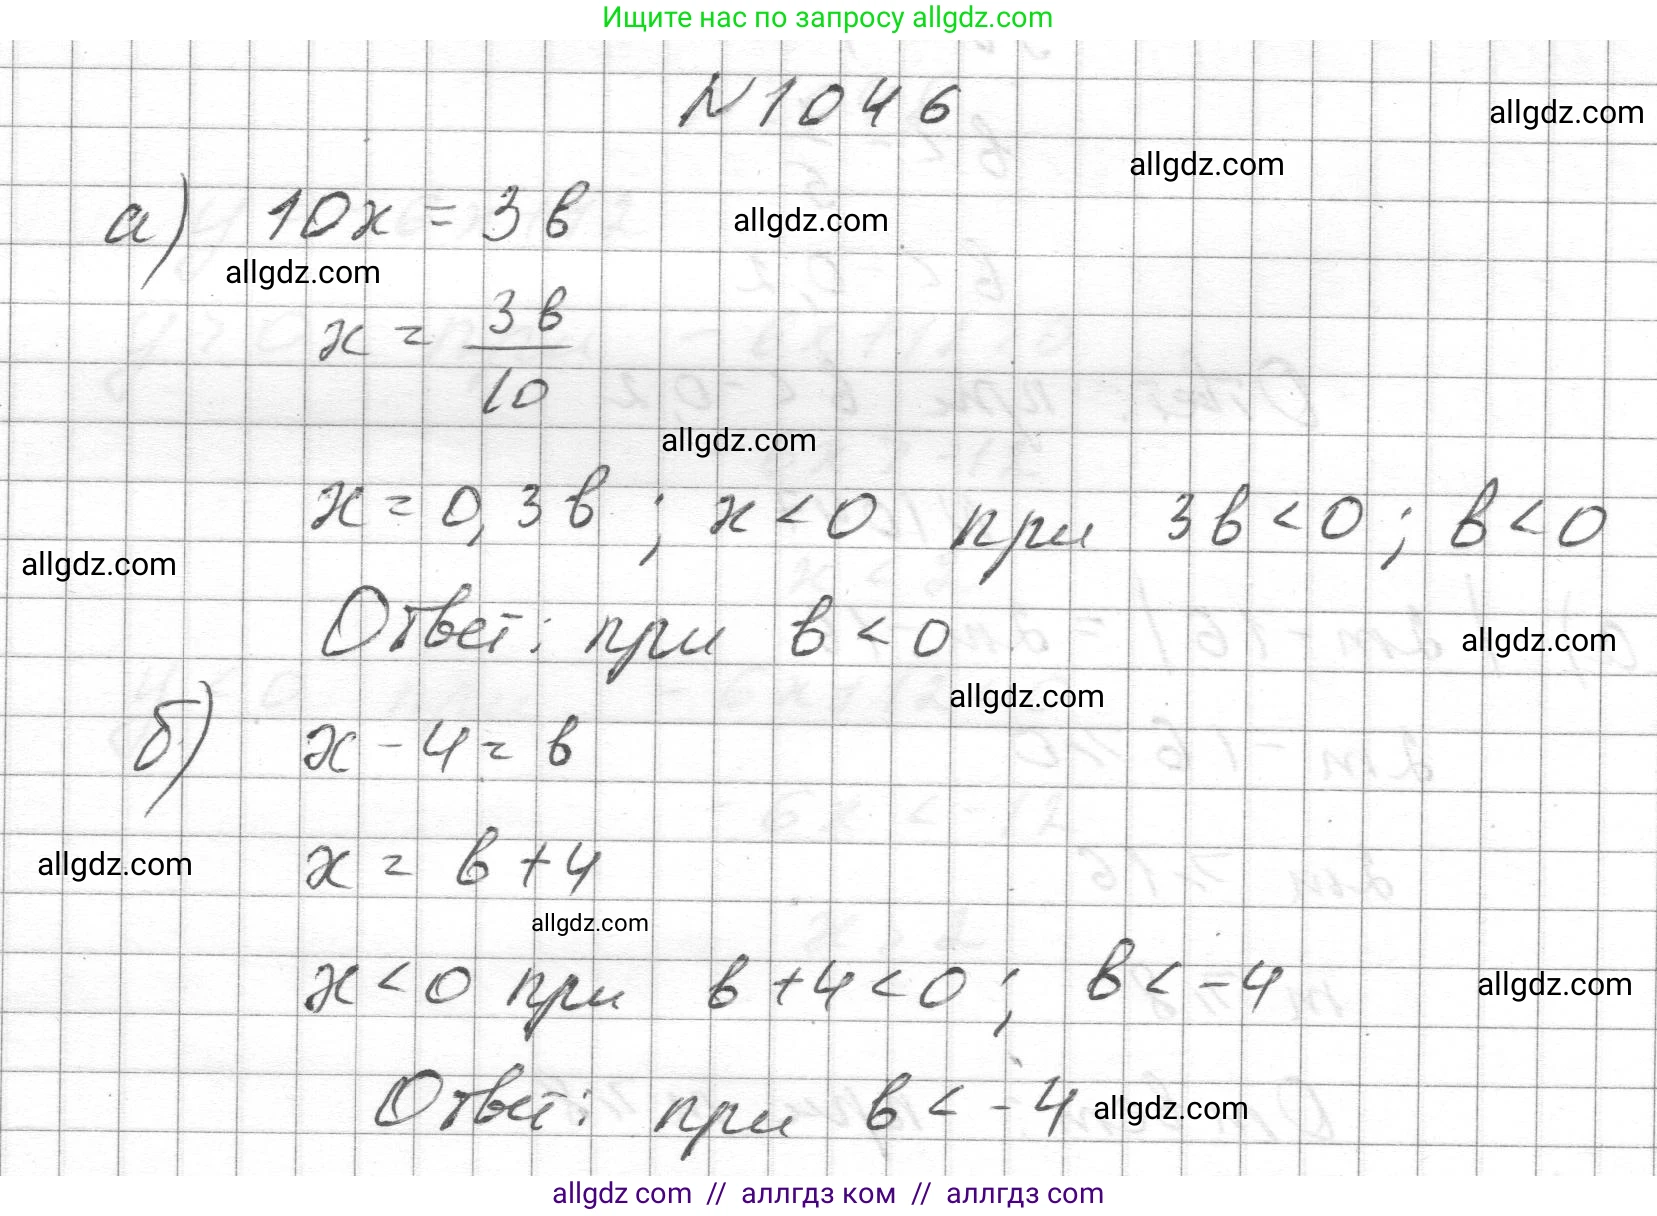 Ищите нас по запросу allgdz.com
N 1046
allgdz.com
allgdz.com
а) 10x = 3в
allgdz.com
allgdz.com
x = 3в/10
allgdz.com
x = 0,3в ; x < 0 при 3в < 0 ; в < 0
allgdz.com
Ответ: при в < 0
allgdz.com
allgdz.com
б) x - 4 = в
x = в + 4
allgdz.com
allgdz.com
x < 0 при в + 4 < 0 ; в < -4
allgdz.com
Ответ: при в < -4
allgdz.com
allgdz com // аллгдз ком // аллгдз com